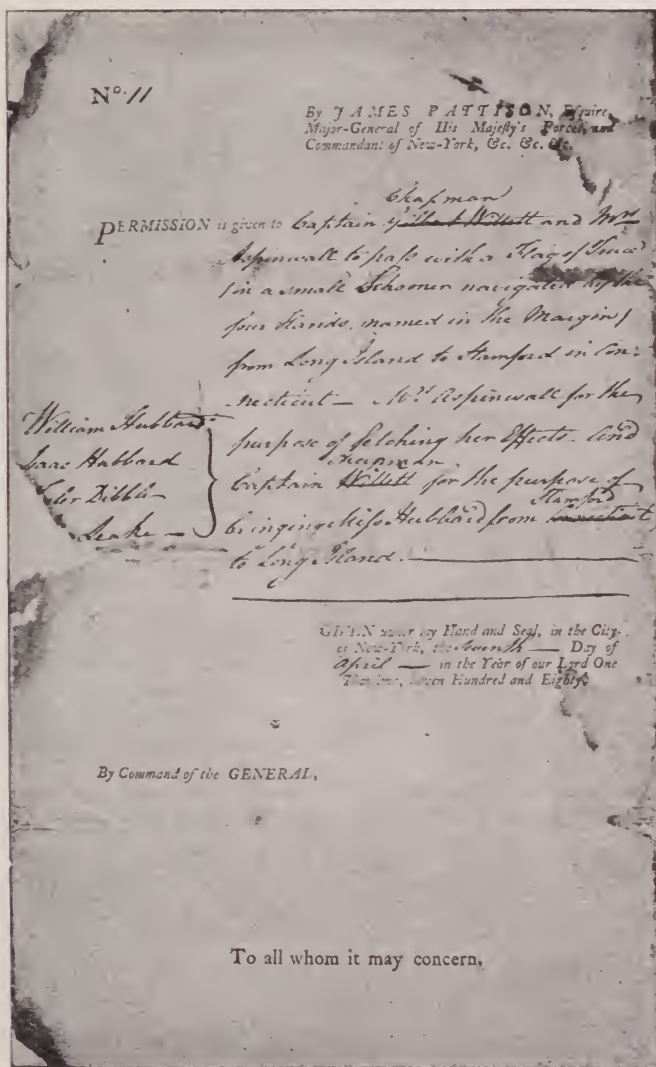 Nº. 11
By JAMES PATTISON, Esquire
Major-General of His Majesty's Forces, and
Commandant of New-York, &c. &c. &c.
Chapman
PERMISSION is given to Captain Gilbert Willett and Mrs
Aspinwall to pass with a Flag of Truce
(in a small Schooner navigated by the
four Hands, named in the Margin)
from Long Island to Stamford in Con-
necticut — Mrs Aspinwall for the
purpose of fetching her Effects — And
Chapman
Captain Willett for the purpose of
Stamford
bringing Miss Hubbard from Connecticut
to Long Island.
William Hubbard
Isaac Hubbard
Dibble
Leake
GIVEN under my Hand and Seal, in the City
of New-York, the — Day of
April — in the Year of our Lord One
Thousand, Seven Hundred and Eighty.
By Command of the GENERAL,
To all whom it may concern.